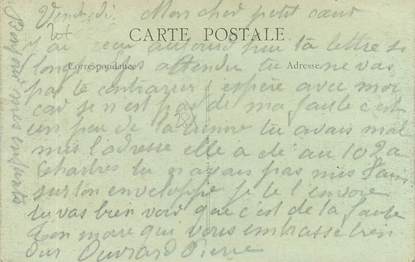 Vendredi Mon cher petit
CARTE POSTALE
Correspondance Adresse
j'ai reçu aujourd'hui ta lettre si
attendu tu ne vas
pas te contrarier j'espère avec moi
car se n'est pas de ma faute c'est
un peu de la tienne tu avais mal
mis l'adresse elle a été au 102 a
Chartres tu n'ayais pas mis
sur ton enveloppe je te l'envoie
tu vas bien voir que c'est de ta faute
ton mare qui vous embrasse bien
Ouvrard Pierre